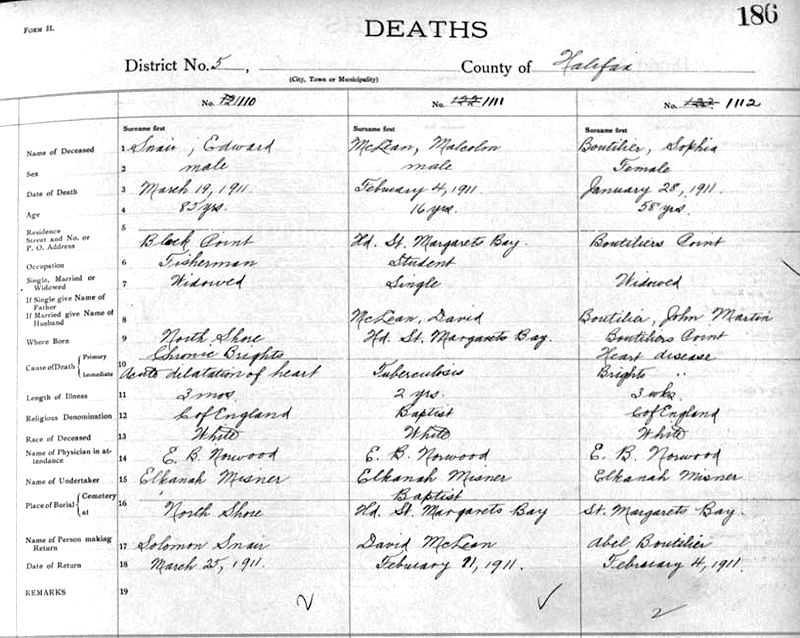 186
FORM H.
DEATHS
District No. 5, County of Halifax
(City, Town or Municipality)
No. 121110 No. 122 1111 No. 123 1112
Surname first Surname first Surname first
Name of Deceased 1 Snair, Edward McLean, Malcolm Boutilier, Sophia
Sex 2 male male Female
Date of Death 3 March 19, 1911 February 4, 1911. January 28, 1911.
Age 4 85 yrs. 16 yrs. 58 yrs.
Residence 5
Street and No. or
P. O. Address Black Point Hd. St. Margarets Bay. Boutiliers Point
Occupation 6 Fisherman Student
Single, Married or
Widowed 7 Widowed Single Widowed
If Single give Name of
Father
If Married give Name of
Husband 8 McLean, David Boutilier, John Martin
Where Born 9 North Shore Hd. St. Margarets Bay. Boutiliers Point
Cause of Death { Primary Chronic Brights Heart disease
Immediate 10 Acute dilatation of heart Tuberculosis Brights "
Length of Illness 11 3 mos. 2 yrs. 3 wks.
Religious Denomination 12 C of England Baptist C of England
Race of Deceased 13 White White White
Name of Physician in at-
tendance 14 E. B. Norwood E. B. Norwood E. B. Norwood
Name of Undertaker 15 Elkanah Misner Elkanah Misner Elkanah Misner
Place of Burial { Cemetery 16 Baptist
at North Shore Hd. St. Margarets Bay St. Margarets Bay.
Name of Person making
Return 17 Solomon Snair David McLean Abel Boutilier
Date of Return 18 March 25, 1911. February 11, 1911. February 4, 1911.
REMARKS 19
2